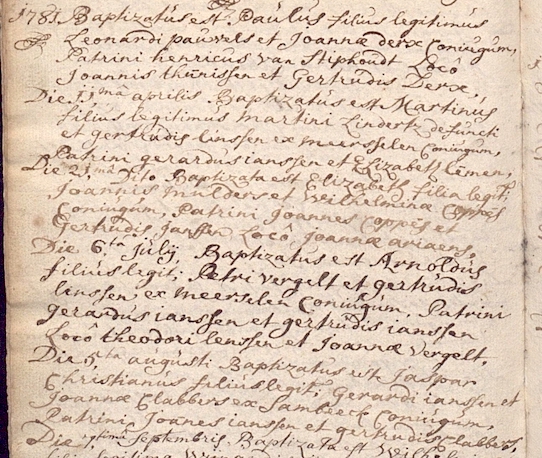 1781. Baptizatus est Paulus filius legitimus
Leonardi pauvels et Joannæ derx Coniugum,
Patrini henricus van Stiphoudt Locô
Joannis thunissen et Gertrudis Derx,
Die 11mâ aprilis Baptizatus est Martinus
filius legitimus martini Lindertz defuncti
et gertrudis linssen ex meersselen Coniugum,
Patrini gerardus ianssen et Elizabeth
Die 21mâ dito Baptizata est Elizabeth filia legit:
Joannis mulders et Wilhelminæ Coppes
Coniugum, Patrini Joannes Coppes et
Gertrudis Janssen Locô Joannæ ariaens,
Die 6ta Julij Baptizatus est Arnoldus
filius legit: Petri vergelt et gertrudis
linssen ex meerselen Coniugum, Patrini
gerardus ianssen et gertrudis ianssen
Locô theodori lenssen et Joannæ vergelt,
Die 5ta augusti Baptizatus est Jaspar
Christianus filius legit: Gerardi ianssen et
Joannæ Clabbers ex Sambeeck Coniugum,
Patrini Joanes ianssen et gertrudis Clabbers,
Die septembris Baptizata est